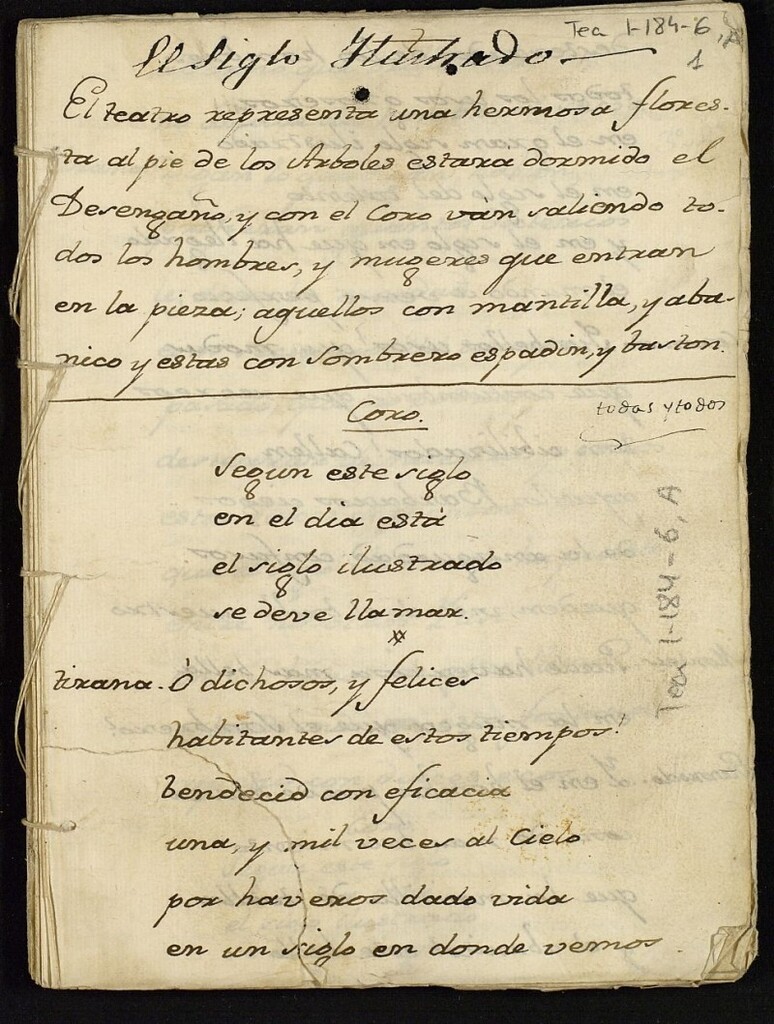 Tea 1-184-6, A
1
El Siglo Ilustrado
El teatro representa una hermosa flores-
ta al pie de los Arboles estara dormido el
Desengaño, y con el Coro ván saliendo to-
dos los hombres, y mugeres que entran
en la pieza; aquellos con mantilla, y aba-
nico y estas con Sombrero espadin, y baston.
Coro.
todas y todos
Segun este siglo
en el dia está
el siglo ilustrado
se deve llamar.
tirana. Ó dichosos, y felices
habitantes de estos tiempos!
bendecid con eficacia
una, y mil veces al Cielo
por haveros dado vida
en un siglo en donde vemos
Tea 1-184-6, A